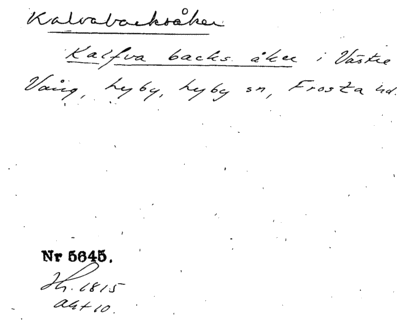 Kalvabacksåker
Kalfva backs åker i Västre
Vång, Lyby, Lyby sn, Frosta hd.
Nr 5645.
Jb. 1815
akt 10.